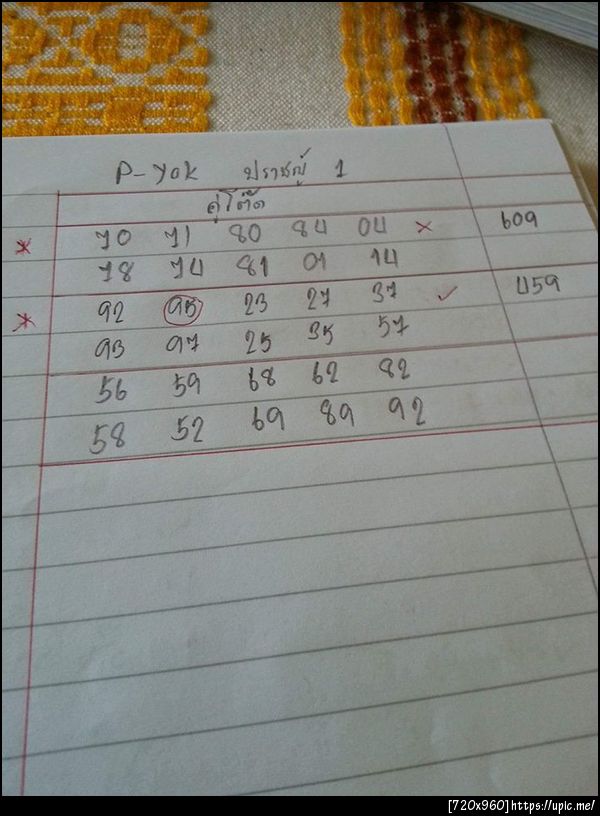 P-Yok ปราชญ์ 1
คู่โต๊ด
* 70 71 80 84 04 × 609
78 74 81 01 14
* 92 95 23 27 37 ✓ 459
93 97 25 35 57
56 59 68 62 82
58 52 69 89 92
[720x960]https://upic.me/